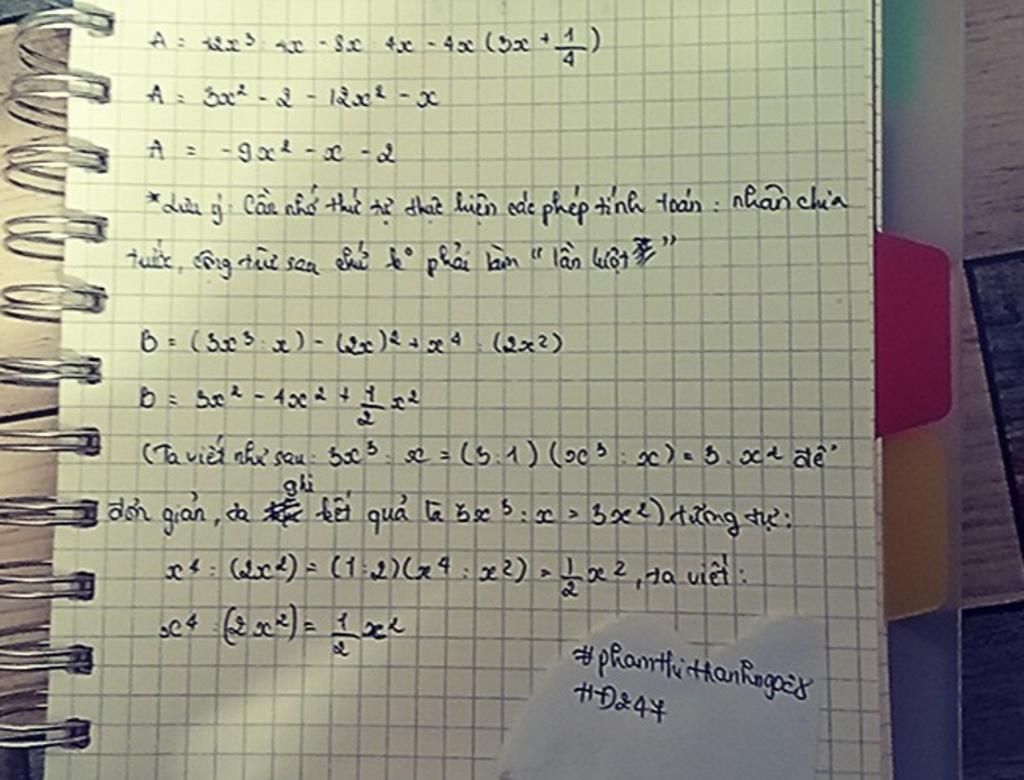 A = 12x³ : 4x - 8x : 4x - 4x (3x + 1/4)
A = 3x² - 2 - 12x² - x
A = -9x² - x - 2
*Lưu ý: Cần nhớ thứ tự thực hiện các phép tính toán: nhân chia
trước, cộng trừ sau chứ k° phải làm " lần lượt "
B = (3x³ : x) - (2x)² + x⁴ : (2x²)
B = 3x² - 4x² + 1/2 x²
(Ta viết như sau: 3x³ : x = (3:1) (x³ : x) = 3.x² để
đơn giản, ta ghi kết quả là 3x³ : x = 3x²) tương tự:
x⁴ : (2x²) = (1:2)(x⁴ : x²) = 1/2 x², ta viết:
x⁴ : (2x²) = 1/2 x²
#phamthithanhngoc8
#D247